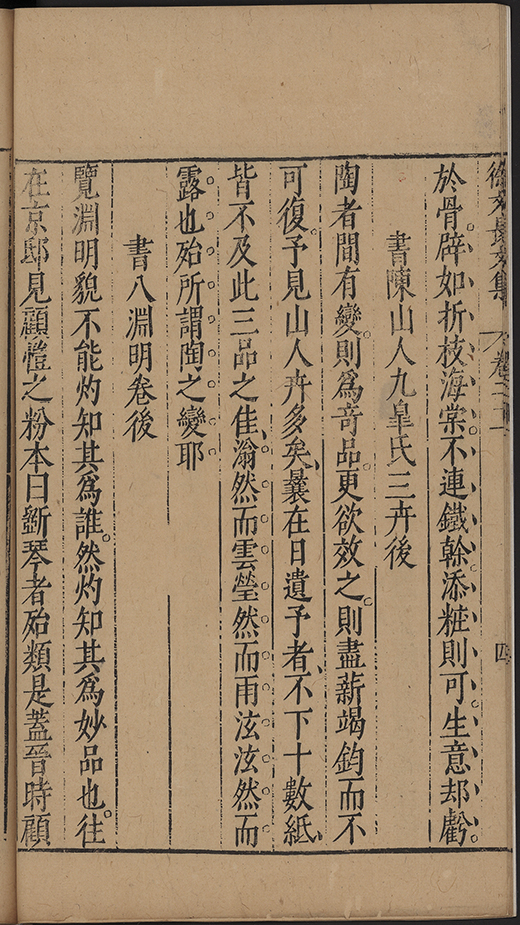 徐文長文集 卷二十一 四
於骨。辟如折枝海棠。不連鐵榦。添粧則可。生意却虧。
書陳山人九皐氏三卉後
陶者間有變。則為竒品。更欲效之。則盡薪竭鈞而不
可復。予見山人卉多矣、曩在日遺予者、不下十數紙、
皆不及此三品之佳、滃然而雲瑩然而雨泫泫然而
露也殆所謂陶之變耶
書八淵明卷後
覽淵明貌不能灼知其為誰。然灼知其為妙品也。往
在京邸見顧愷之粉本曰斵琴者殆類是蓋晉時顧